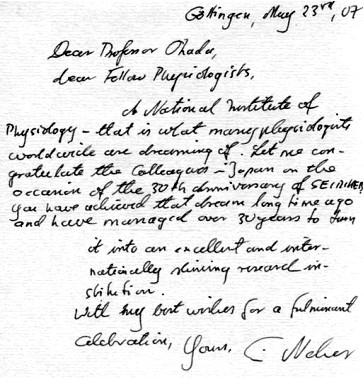 Göttingen, May 23rd, 07
Dear Professor Okada,
dear Fellow Physiologists,
A National Institute of
Physiology – that is what many physiologists
worldwide are dreaming of. Let me con-
gratulate the Colleagues – Japan on the
occasion of the 30th anniversary of SEIRIKEN
you have achieved that dream long time ago
and have managed over 30 years to turn
it into an excellent and inter-
nationally shining research in-
stitution.
With my best wishes for a fulminant
celebration, Yours, E. Neher